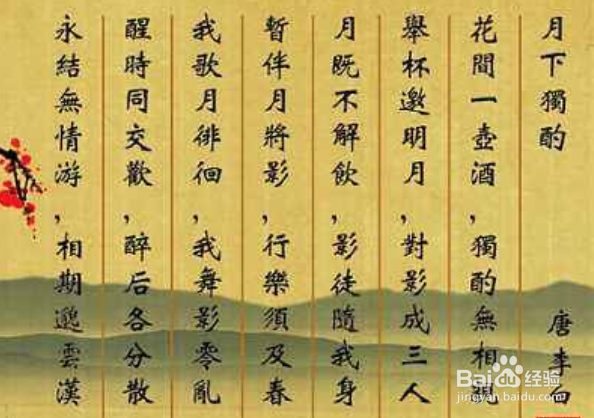 月下獨酌 唐李白
花間一壺酒,獨酌無相親
舉杯邀明月,對影成三人
月既不解飲,影徒隨我身
暫伴月將影,行樂須及春
我歌月徘徊,我舞影零亂
醒時同交歡,醉后各分散
永結無情游,相期邈雲漢
Baidu经验
jingyan.baidu.com